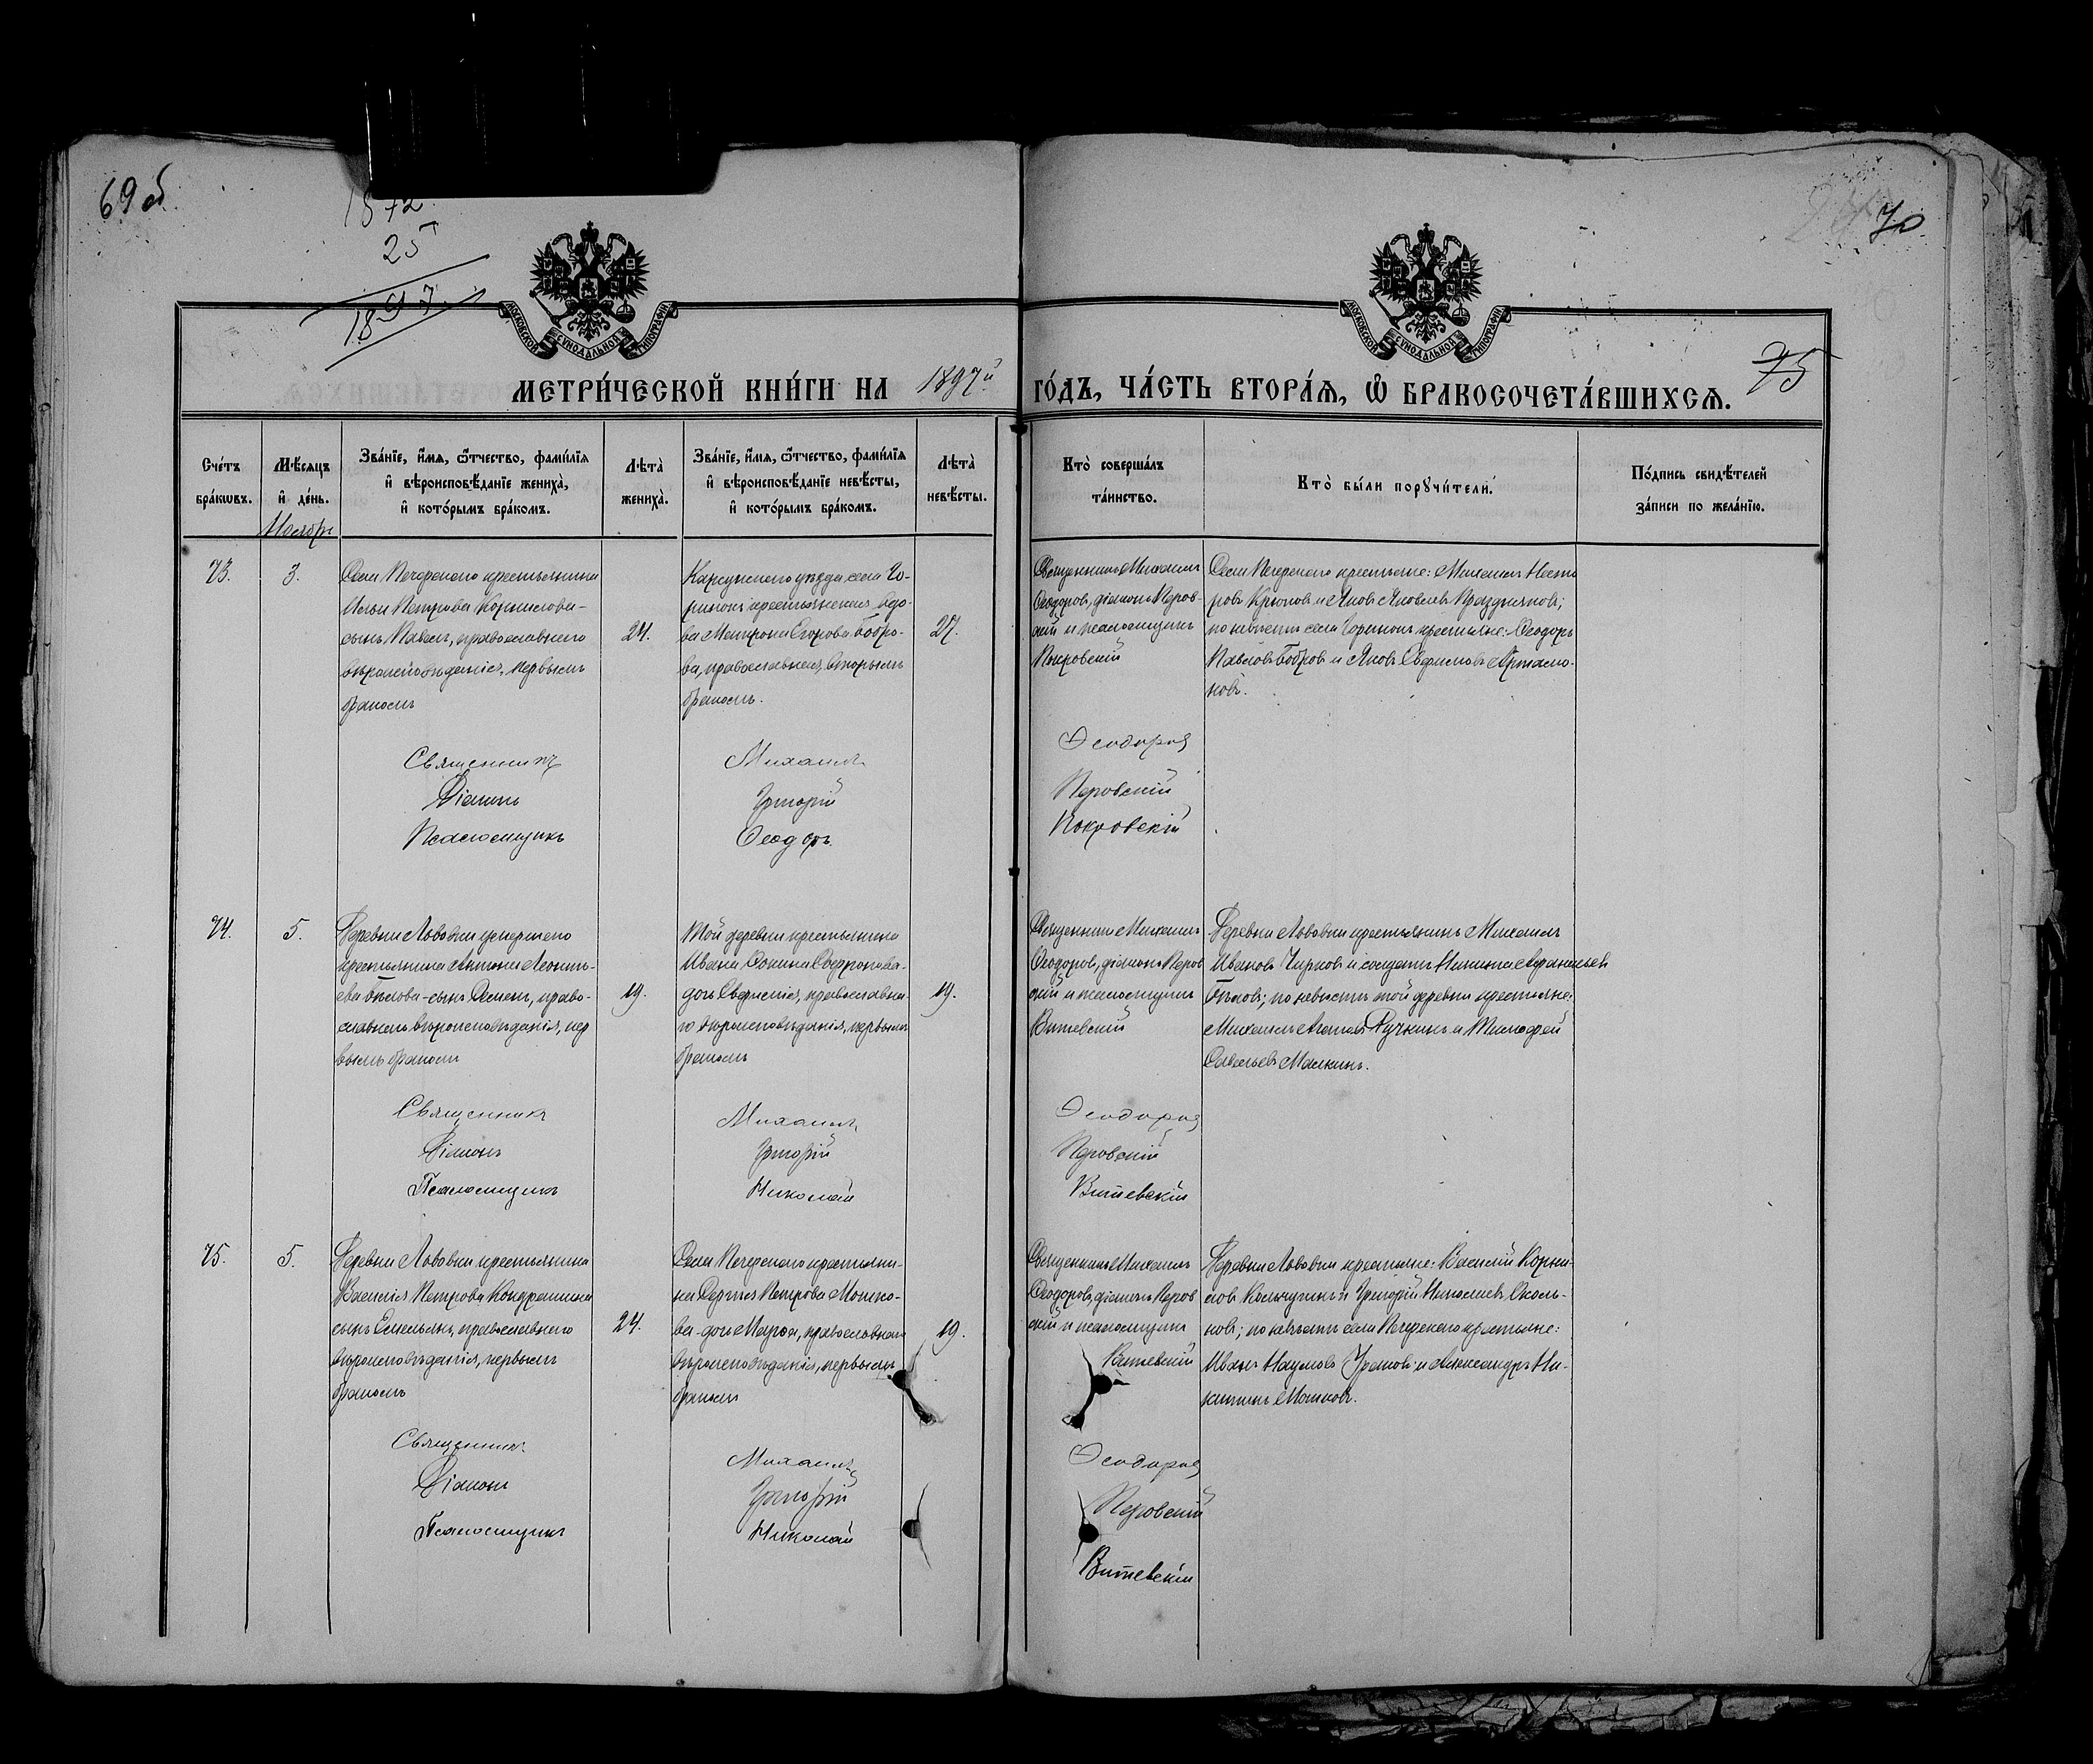 69 об.
1872
25
1897
70
МОСКОВСКОЙ СѴНОДАЛЬНОЙ ТИПОГРАФІИ
МОСКОВСКОЙ СѴНОДАЛЬНОЙ ТИПОГРАФІИ
МЕТРИ́ЧЕСКОЙ КНИ́ГИ НА 1897й ГО́ДЪ, ЧА́СТЬ ВТОРА́Ѧ, Ѽ БРАКОСОЧЕТА́ВШИХСѦ. 75
Сче́тъ
бра́кѡвъ.
Мѣ́сяцъ
и҆ де́нь.
Ноябрь
Зва́нїе, и҆́мя, ѻ҆́тчество, фами́лїя
и҆ вѣроисповѣ́данїе жениха̀,
и҆ кото́рымъ бра́комъ.
Лѣта̀
жениха̀.
Зва́нїе, и҆́мя, ѻ҆́тчество, фами́лїя
и҆ вѣроисповѣ́данїе невѣ́сты,
и҆ кото́рымъ бра́комъ.
Лѣта̀
невѣ́сты.
Кто̀ соверша́лъ
та́инство.
Кто̀ бы́ли порꙋчи́тели.
По́дпись свидѣ́телей
за́писи по жела́нїю.
73.
3.
Села Печерскаго крестьянина
Ильи Петрова Корнилова-
сынъ Павелъ, православнаго
вѣроисповѣданія, первымъ
бракомъ
24.
Карсунскаго уѣзда, села Го-
рино крестьянская вдо-
ва Матрона Егорова Бобро-
ва, православная, вторымъ
бракомъ.
27.
Священникъ Михаилъ
Ѳеодоровъ, діаконъ Перов-
скій и псаломщикъ
Покровскій
Села Печерскаго крестьяне: Михаилъ Несте
ровъ Крюковъ и Яковъ Яковлевъ Праздниковъ;
по невѣстѣ села Горинокъ крестьяне: Ѳеодоръ
Павловъ Бобровъ и Яковъ Ефимовъ Артамо-
новъ.
Священникъ Михаилъ Ѳеодоровъ
Діаконъ Григорій Перовскій
Псаломщикъ Ѳеодоръ Покровскій
74.
5.
Деревни Львовки умершего
крестьянина Антона Леонть-
ева Бѣлова-сынъ Семенъ, право-
славнаго вѣроисповѣданія, пер
вымъ бракомъ
19.
Той деревни крестьянина
Ивана Ѳокина Софронова-
дочь Евфимія, православна-
го вѣроисповѣданія, первымъ
бракомъ
19.
Священникъ Михаилъ
Ѳеодоровъ, діаконъ Перов
скій и псаломщикъ
Витевскій
Деревни Львовки крестьянинъ Михаилъ
Ивановъ Чирковъ и солдатъ Никита Аѳанасьевъ
Бѣловъ; по невѣстѣ той деревни крестьяне:
Михаилъ Ручкинъ и Тимофей
Савельевъ Малкинъ.
Священникъ Михаилъ Ѳеодоровъ
Діаконъ Григорій Перовскій
Псаломщикъ Николай Витевскій
75.
5.
Деревни Львовки крестьянина
Василія Петрова Кондрашина
сынъ Емельянъ, православнаго
вѣроисповѣданія, первымъ
бракомъ
24.
Села Печерскаго крестьяни-
на Сергія Петрова Мошко-
ва-дочь Марѳа, православнаго
вѣроисповѣданія, первымъ
бракомъ
19.
Священникъ Михаилъ
Ѳеодоровъ, діаконъ Перов
скій и псаломщикъ
Витевскій
Деревни Львовки крестьяне: Василій Корни-
ловъ Кольчугинъ и Григорій Николаевъ Околь-
новъ; по невѣстѣ села Печерскаго крестьяне:
Иванъ Наумовъ Усановъ и Александръ Ни-
китинъ Мошковъ.
Священникъ Михаилъ Ѳеодоровъ
Діаконъ Григорій Перовскій
Псаломщикъ Николай Витевскій